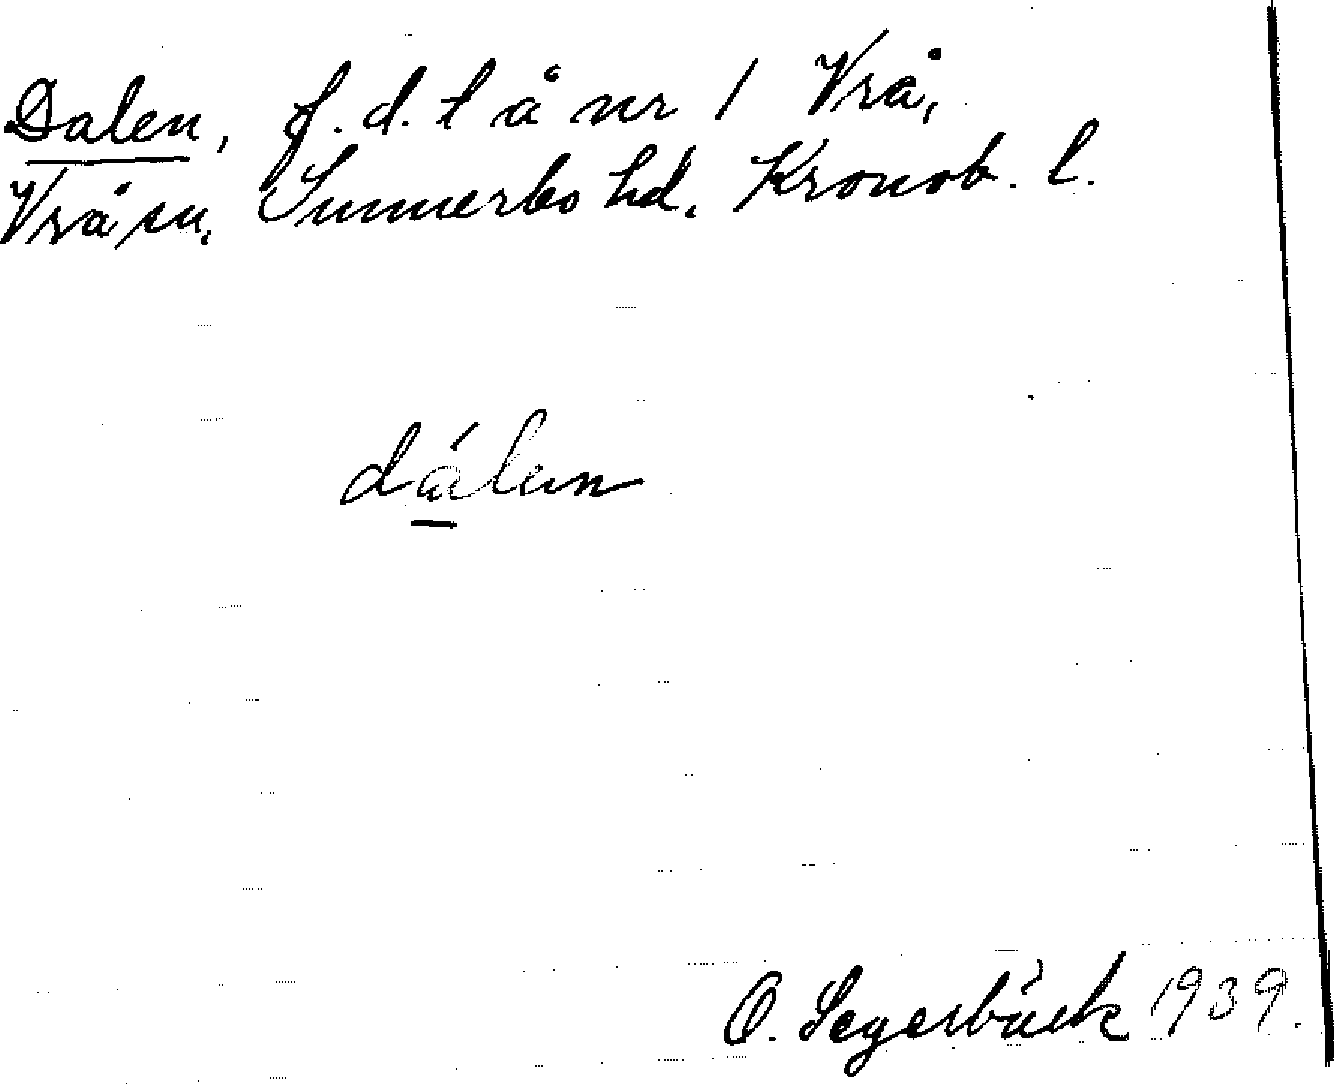 Dalen, f. d. t å nr 1 Vrå,
Vrå sn, Sunnerbo hd, Kronob. l.
dálen
O. Segerbäck 1939.